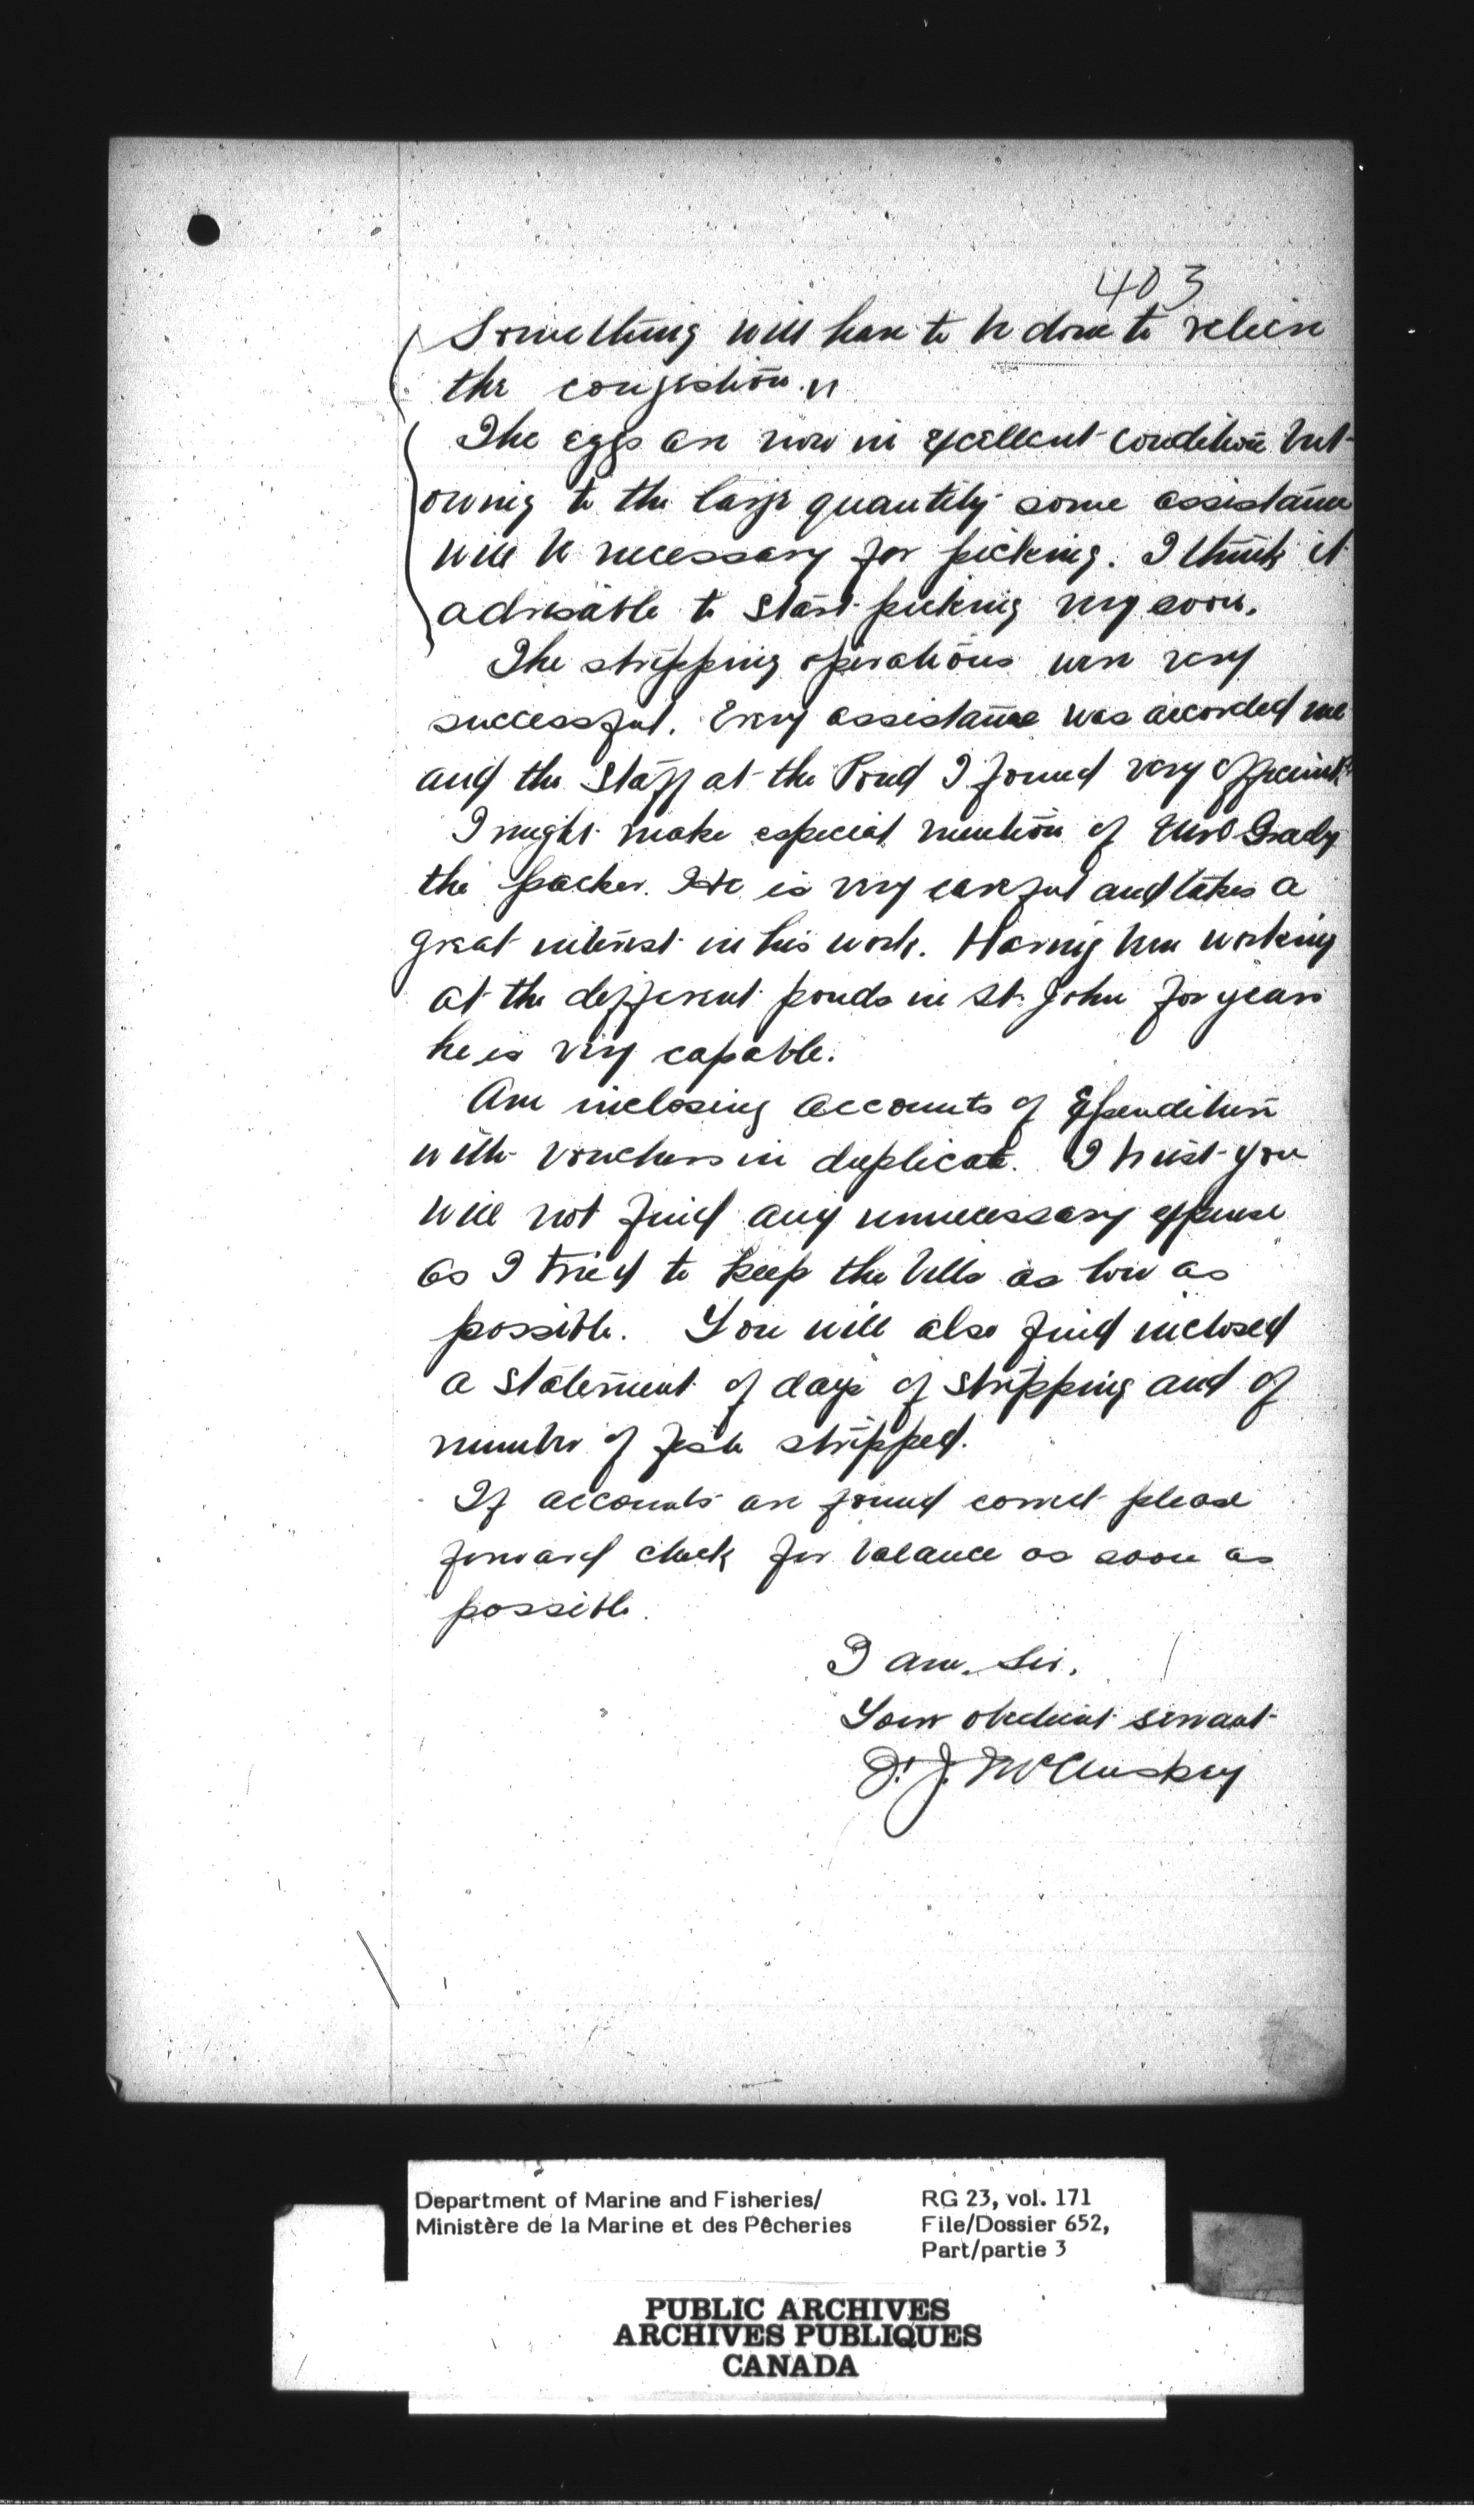 403
Something will have to be done to relieve
the congestion.
The eggs are now in excellent condition but
owing to the large quantity some assistance
will be necessary for picking. I think it
advisable to start picking very soon.
The stripping operations were very
successful. Every assistance was accorded me
and the staff at the Pond I found very efficient.
I might make especial mention of Grady
the packer. He is very careful and takes a
great interest in his work. Having been working
at the different ponds in St. John for years
he is very capable.
Am inclosing accounts of Expenditure
with vouchers in duplicate. I trust you
will not find any unnecessary expense
as I tried to keep the bills as low as
possible. You will also find inclosed
a statement of days of stripping and of
number of fish stripped.
If accounts are found correct please
forward check for balance as soon as
possible.
I am, Sir,
Your obedient servant
J. McCluskey
Department of Marine and Fisheries/
Ministère de la Marine et des Pêcheries
RG 23, vol. 171
File/Dossier 652,
Part/partie 3
PUBLIC ARCHIVES
ARCHIVES PUBLIQUES
CANADA